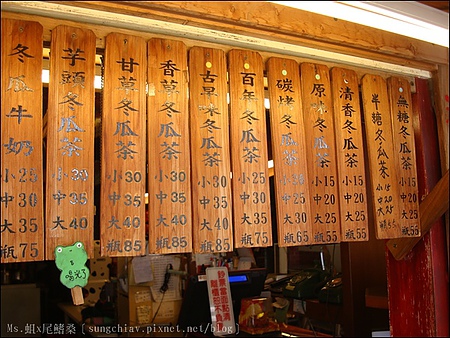 冬瓜牛奶 小25 中30 大35 瓶75
芋頭冬瓜茶 小30 中35 大40
甘草冬瓜茶 小30 中35 大40 瓶85
香草冬瓜茶 小30 中35 大40 瓶85
古早味冬瓜茶 小30 中35 大40 瓶85
百年冬瓜茶 小25 中30 大35 瓶75
炭烤冬瓜茶 小15 中20 大25 瓶55
原味冬瓜茶 小15 中20 大25 瓶55
清香冬瓜茶 小15 中20 大25 瓶55
半糖冬瓜茶 小15 中20 大25
無糖冬瓜茶 小15 中20 大25 瓶55
Ms.蛆x尾鰭桑 [ sungchiav.pixnet.net/blog]